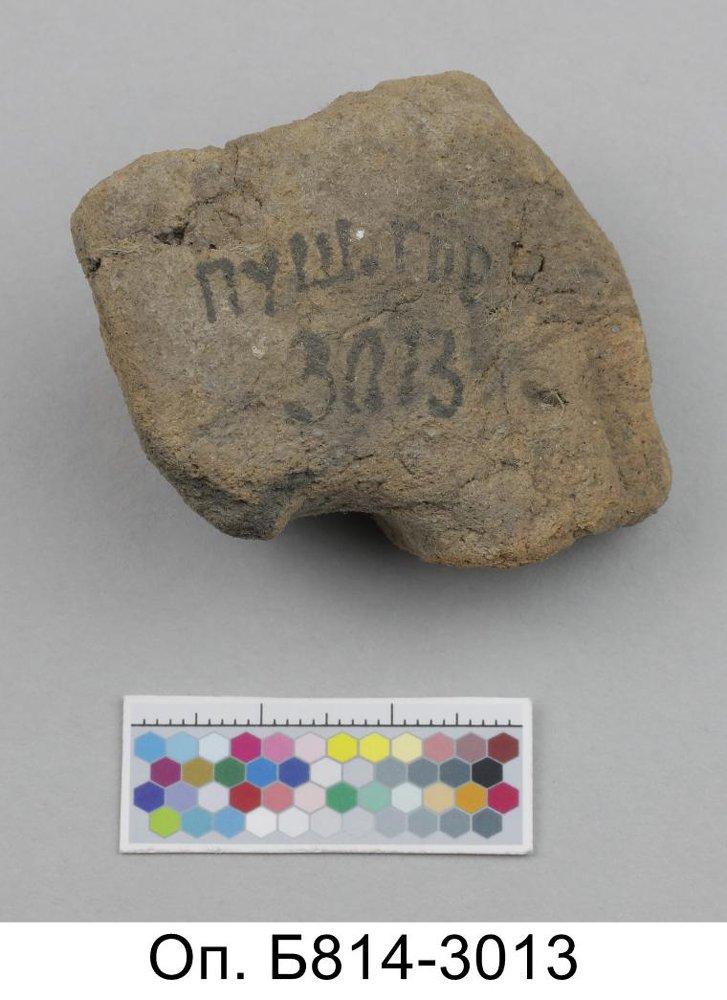 ПУШ. ГОР
3013
Оп. Б814-3013